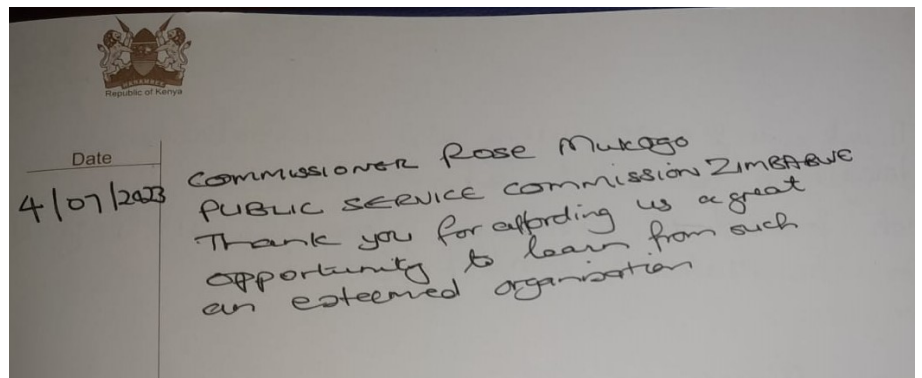 HARAMBEE
Republic of Kenya
Date
4/07/2023
COMMISSIONER Rose Mukogo
PUBLIC SERVICE COMMISSION ZIMBABWE
Thank you for affording us a great
opportunity to learn from such
an esteemed organisation